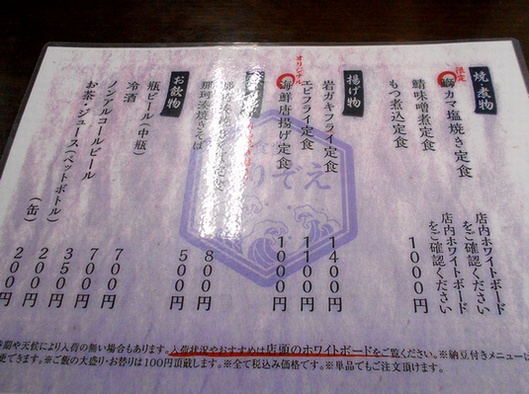 焼・煮物
限定
鰤カマ塩焼き定食 店内ホワイトボードをご確認ください
鯖味噌煮定食 店内ホワイトボードをご確認ください
もつ煮込定食 1000円
揚げ物
岩ガキフライ定食 1400円
エビフライ定食 1100円
オリジナル
海鮮唐揚げ定食 1000円
800円
那珂湊焼きそば 500円
お飲物
瓶ビール(中瓶) 700円
冷酒 700円
ノンアルコールビール 350円
お茶・ジュース(ペットボトル) 200円
(缶) 200円
や天候により入荷の無い場合もあります。入荷状況やおすすめは店頭のホワイトボードをご覧ください。※納豆付きメニューは
更できます。※ご飯の大盛り・お替りは100円頂戴します。※全て税込み価格です。※単品でもご注文頂けます。